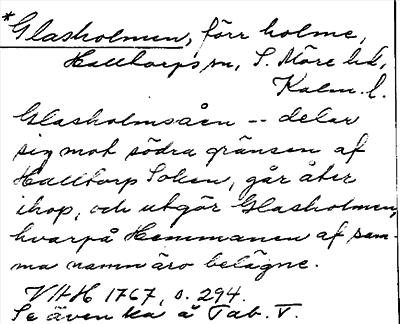 *Glasholmen, förr holme,
Halltorps sn, S. Möre hd,
Kalm. l.
Glasholmsåen -- delar
sig mot södra gränsen af
Halltorp Soken, går åter
ihop, och utgör Glasholmen,
hvarpå Hemmanen af sam-
ma namn äro belägne.
VHH 1767, s. 294.
Se även ka å Tab. V.